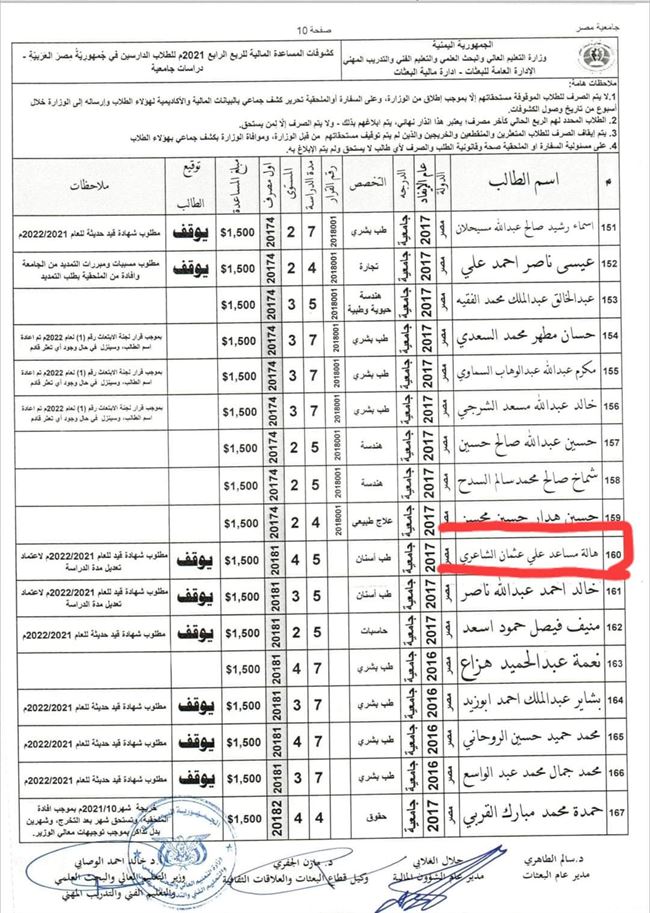 جامعية مصر
صفحة 10
الجمهورية اليمنية
وزارة التعليم العالي والبحث العلمي والتعليم الفني والتدريب المهني
الإدارة العامة للبعثات - ادارة مالية البعثات
كشوفات المساعدة المالية للربع الرابع 2021م للطلاب الدارسين في جمهورية مصر العربية - دراسات جامعية
ملاحظات هامة:
1.لا يتم الصرف للطلاب الموقوفة مستحقاتهم إلا بموجب إطلاق من الوزارة، وعلى السفارة أوالملحقية تحرير كشف جماعي بالبيانات المالية والاكاديمية لهؤلاء الطلاب وإرساله إلى الوزارة خلال
أسبوع من تاريخ وصول الكشوفات.
2. الطلاب المحدد لهم الربع الحالي كآخر مصرف؛ يعتبر هذا انذار نهائي، يتم ابلاغهم بذلك - ولا يتم الصرف إلا لمن يستحق.
3. يتم إيقاف الصرف للطلاب المتعثرين والمنقطعين والخريجين والذين لم يتم توقيف مستحقاتهم من قبل الوزارة، وموافاة الوزارة بكشف جماعي بهؤلاء الطلاب
4. على مسئولية السفارة او الملحقية صحة وقانونية الطلب والصرف لأي طالب لا يستحق ولم يتم الإبلاغ به.
م اسم الطالب الدولة عام الإيفاد الدرجة التخصص رقم القرار مدة الدراسة المستوى اول مصرف مبلغ المساعدة توقيع الطالب ملاحظات
151 اسماء رشيد صالح عبدالله سبحلان مصر 2017 جامعية طب بشري 2018001 7 2 20174 $1,500 يوقف مطلوب شهادة قيد حديثة للعام 2022/2021م
152 عيسى ناصر احمد علي مصر 2017 جامعية تجارة 2018001 4 2 20174 $1,500 يوقف مطلوب مسببات ومبررات التمديد من الجامعة وافادة من الملحقية بطلب التمديد
153 عبدالخالق عبدالملك محمد الفقيه مصر 2017 جامعية هندسة حيوية وطبية 2018001 5 3 20174 $1,500
154 حسان مطهر محمد السعدي مصر 2017 جامعية طب بشري 2018001 7 3 20174 $1,500 بموجب قرار لجنة الابتعاث رقم (1) لعام 2022م تم اعادة اسم الطالب، وسينزل في حال وجود أي تعثر قادم
155 مكرم عبدالله عبدالوهاب السماوي مصر 2017 جامعية طب بشري 2018001 7 3 20174 $1,500 بموجب قرار لجنة الابتعاث رقم (1) لعام 2022م تم اعادة اسم الطالب، وسينزل في حال وجود أي تعثر قادم
156 خالد عبدالله مسعد الشرجي مصر 2017 جامعية طب بشري 2018001 7 3 20174 $1,500 بموجب قرار لجنة الابتعاث رقم (1) لعام 2022م تم اعادة اسم الطالب، وسينزل في حال وجود أي تعثر قادم
157 حسين عبدالله صالح حسين مصر 2017 جامعية هندسة 2018001 5 2 20174 $1,500
158 شماخ صالح محمد سالم السدح مصر 2017 جامعية هندسة 2018001 5 2 20174 $1,500
159 حسين هدار حسين محسن مصر 2017 جامعية علاج طبيعي 2018001 4 2 20174 $1,500
160 هالة مساعد علي عثمان الشاعري مصر 2017 جامعية طب أسنان 5 4 20181 $1,500 يوقف مطلوب شهادة قيد حديثة للعام 2022/2021م لاعتماد تعديل مدة الدراسة
161 خالد احمد عبدالله ناصر مصر 2017 جامعية طب أسنان 5 3 20181 $1,500 يوقف مطلوب شهادة قيد حديثة للعام 2022/2021م لاعتماد تعديل مدة الدراسة
162 منيف فيصل حمود اسعد مصر 2017 جامعية حاسبات 5 2 20181 $1,500 يوقف مطلوب شهادة قيد حديثة للعام 2022/2021م
163 نعمة عبدالحميد هزاع مصر 2016 جامعية طب بشري 7 4 20181 $1,500
164 بشاير عبدالملك احمد ابوزيد مصر 2016 جامعية طب بشري 7 3 20181 $1,500 يوقف مطلوب شهادة قيد حديثة للعام 2022/2021م
165 محمد حميد حسين الروحاني مصر 2016 جامعية طب بشري 7 4 20181 $1,500 يوقف مطلوب شهادة قيد حديثة للعام 2022/2021م
166 محمد جمال محمد عبد الواسع مصر 2016 جامعية طب بشري 7 3 20181 $1,500 يوقف مطلوب شهادة قيد حديثة للعام 2022/2021م
167 حمدة محمد مبارك القربي مصر 2017 جامعية حقوق 4 4 20182 $1,500 خريجة شهر 2021/10م بموجب افادة الملحقية، وتستحق شهر بعد التخرج، وشهرين بدل تذاكر بموجب توجيهات معالي الوزير.
د. سالم الطاهري
مدير عام البعثات
جلال الغلابي
مدير عام الشؤون المالية
د. مازن الجفري
وكيل قطاع البعثات والعلاقات الثقافية
ا.د خالد احمد الوصابي
وزير التعليم العالي والبحث العلمي
والتعليم الفني والتدريب المهني